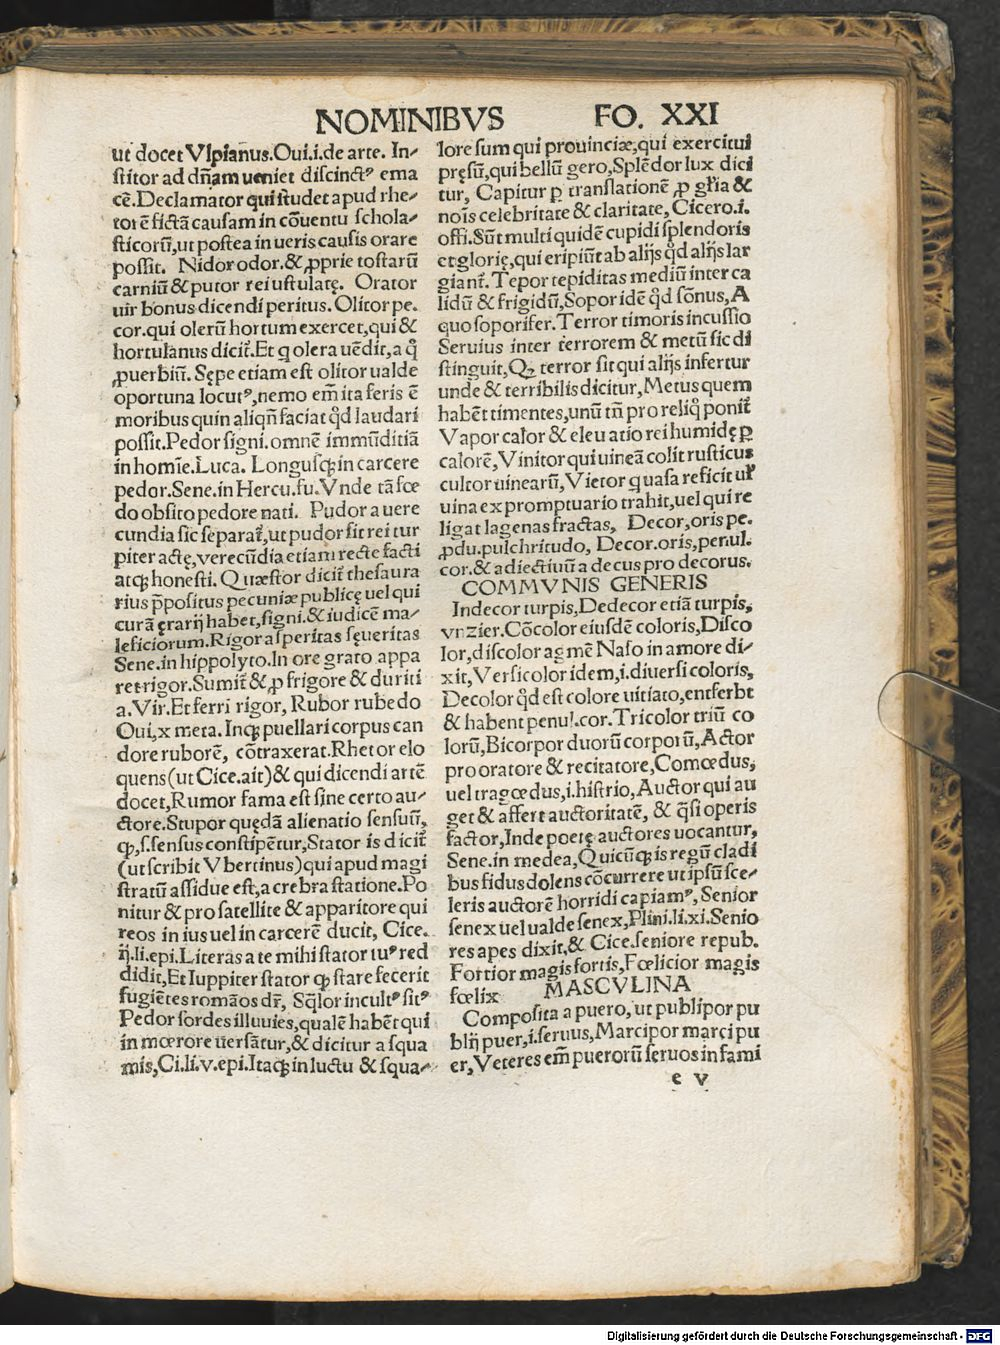 NOMINIBVS FO. XXI
ut docet Vlpianus. Oui.i.de arte. In-
stitor ad dñam ueniet discinctꝰ ema
cē. Declamator qui studet apud rhe-
torē fictā causam in cōuentu schola-
sticorū, ut postea in ueris causis orare
possit. Nidor odor. & ꝓprie tostarū
carniū & putor rei ustulatę. Orator
uir bonus dicendi peritus. Olitor pe.
cor. qui olerū hortum exercet, qui &
hortulanus dicit̃. Et q olera uēdit, a q̊
ꝓuerbiū. Sępe etiam est olitor ualde
oportuna locutꝰ, nemo em̄ ita feris ē
moribus quin aliqñ faciat q̊d laudari
possit. Pedor signi. omnē immūditiā
in homīe. Luca. Longusꝙ in carcere
pedor. Sene. in Hercu. fu. Vnde tā fœ
do obsito pedore nati. Pudor a uere
cundia sic separat̃, ut pudor sit rei tur
piter actę, verecūdia etiam recte facti
atꝙ honesti. Quæstor dicit̃ thesaura
rius p̄positus pecuniæ publicę uel qui
curā ęrarij habet, signi. & iudicē ma-
leficiorum. Rigor asperitas sęueritas
Sene. in hippolyto. In ore grato appa
ret rigor. Sumit̃ & ꝓ frigore & duriti
a. Vir. Et ferri rigor, Rubor rubedo
Oui, x meta. Inꝙ puellari corpus can
dore ruborē, cōtraxerat. Rhetor elo
quens (ut Cice. ait) & qui dicendi artē
docet, Rumor fama est sine certo au-
ctore. Stupor quędā alienatio sensuū,
ꝙ, s. sensus constipētur, Stator is dicit̃
(ut scribit Vbertinus) qui apud magi
stratū assidue est, a crebra statione. Po
nitur & pro satellite & apparitore qui
reos in ius uel in carcerē ducit, Cice.
ij. li. epi. Literas a te mihi stator tuꝰ red
didit, Et Iuppiter stator ꝙ stare fecerit
fugiētes romāos dr̄, Sq̄lor incultꝰ sitꝰ
Pedor sordes illuuies, qualē habēt qui
in mœrore uersātur, & dicitur a squa
mis, Ci. li. v. epi. Itaꝙ in luctu & squa-
lore sum qui prouinciæ, qui exercitui
pręsū, qui bellū gero, Splēdor lux dici
tur, Capitur ꝑ translationē ꝓ gl̄ia &
noīs celebritate & claritate, Cicero. i.
offi. Sūt multi quidē cupidi splendoris
et glorię, qui eripiūt ab alijs q̊d alijs lar
giant̃. Tepor tepiditas mediū inter ca
lidū & frigidū, Sopor idē q̊d sōnus, A
quo soporifer. Terror timoris incussio
Seruius inter terrorem & metū sic di
stinguit, Qꝫ terror sit qui alijs infertur
unde & terribilis dicitur, Metus quem
habēt timentes, unū tñ pro reliq̊ ponit̃
Vapor calor & eleuatio rei humidę ꝑ
calorē, Vinitor qui uineā colit rusticus
cultor uinearū, Vietor q uasa reficit ut
uina ex promptuario trahit, uel qui re
ligat lagenas fractas, Decor, oris pe.
ꝓdu. pulchritudo, Decor. oris, penul.
cor. & adiectiuū a decus pro decorus.
COMMVNIS GENERIS
Indecor turpis, Dedecor etiā turpis,
vnzier. Cōcolor eiusdē coloris, Disco
lor, discolor agmē Naso in amore di-
xit, Versicolor idem, i. diuersi coloris,
Decolor q̊d est colore uitiato, entferbt
& habent penul. cor. Tricolor triū co
lorū, Bicorpor duorū corporū, Actor
pro oratore & recitatore, Comœdus,
uel tragœdus, i. histrio, Auctor qui au
get & affert auctoritatē, & q̄si operis
factor, Inde poetę auctores uocantur,
Sene. in medea, Quicūꝙ is regū cladi
bus fidus dolens cōcurrere ut ipsū sce-
leris auctorē horridi capiamꝰ, Senior
senex uel ualde senex, Plini. li. xi. Senio
res apes dixit, & Cice. seniore repub.
Fortior magis fortis, Fœlicior magis
fœlix MASCVLINA
Composita a puero, ut publipor pu
blij puer, i. seruus, Marcipor marci pu
er, Veteres em̄ puerorū seruos in fami
e v
Digitalisierung gefördert durch die Deutsche Forschungsgemeinschaft - DFG